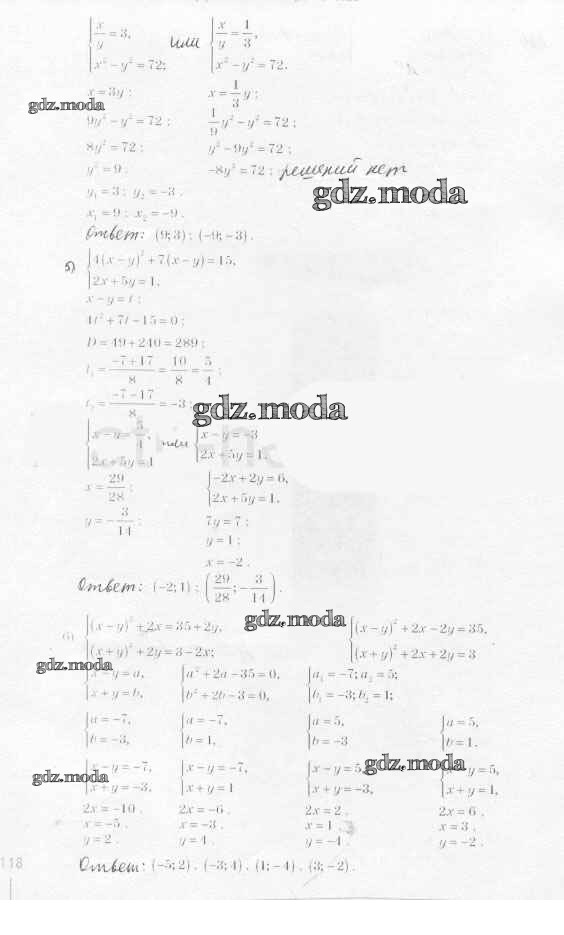 { x/y = 3, x² − y² = 72; или { x/y = 1/3, x² − y² = 72.
x = 3y ; x = 1/3 y ;
gdz.moda
9y² − y² = 72 ; 1/9 y² − y² = 72 ;
8y² = 72 ; y² − 9y² = 72 ;
y² = 9 ; −8y² = 72 ; решений нет
gdz.moda
y₁ = 3 ; y₂ = −3 .
x₁ = 9 ; x₂ = −9 .
Ответ: (9; 3) ; (−9; −3) .
б) { 4(x − y)² + 7(x − y) = 15, 2x + 5y = 1.
x − y = t ;
4t² + 7t − 15 = 0 ;
D = 49 + 240 = 289 ;
t₁ = (−7 + 17)/8 = 10/8 = 5/4 ;
t₂ = (−7 − 17)/8 = −3 ;
gdz.moda
{ x − y = 5/4, 2x + 5y = 1 или { x − y = −3 2x + 5y = 1.
x = 29/28 ; { −2x + 2y = 6, 2x + 5y = 1.
y = −3/14 ; 7y = 7 ;
y = 1 ;
x = −2 .
Ответ: (−2; 1) ; (29/28; −3/14) .
gdz.moda
{ (x − y)² + 2x = 35 + 2y, (x + y)² + 2y = 3 − 2x; { (x − y)² + 2x − 2y = 35, (x + y)² + 2x + 2y = 3
gdz.moda
{ x − y = a, x + y = b, { a² + 2a − 35 = 0, b² + 2b − 3 = 0, { a₁ = −7; a₂ = 5; b₁ = −3; b₂ = 1;
{ a = −7, b = −3, { a = −7, b = 1, { a = 5, b = −3 { a = 5, b = 1.
gdz.moda
gdz.moda
{ x − y = −7, x + y = −3, { x − y = −7, x + y = 1 { x − y = 5, x + y = −3, { x − y = 5, x + y = 1,
2x = −10 . 2x = −6 . 2x = 2 . 2x = 6 .
x = −5 . x = −3 . x = 1 . x = 3 .
y = 2 . y = 4 . y = −4 . y = −2 .
118
Ответ: (−5; 2) , (−3; 4) , (1; −4) , (3; −2) .